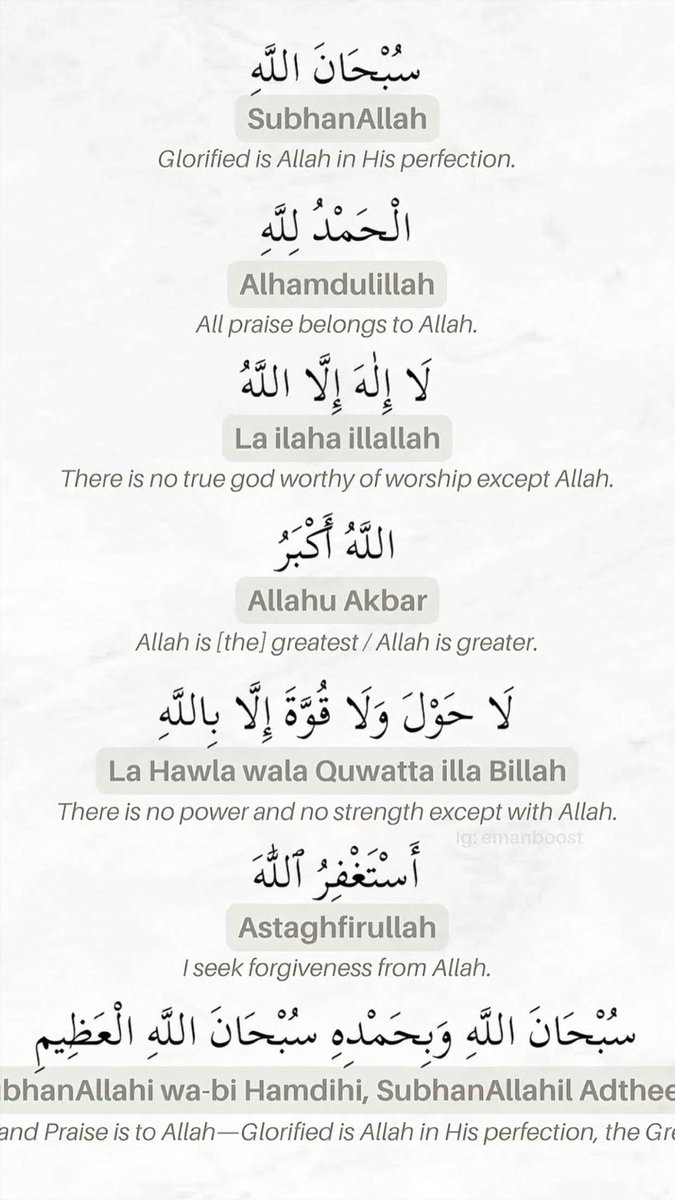 سُبْحَانَ اللَّهِ
SubhanAllah
Glorified is Allah in His perfection.
الْحَمْدُ لِلَّهِ
Alhamdulillah
All praise belongs to Allah.
لَا إِلٰهَ إِلَّا اللَّهُ
La ilaha illallah
There is no true god worthy of worship except Allah.
اللَّهُ أَكْبَرُ
Allahu Akbar
Allah is [the] greatest / Allah is greater.
لَا حَوْلَ وَلَا قُوَّةَ إِلَّا بِاللَّهِ
La Hawla wala Quwatta illa Billah
There is no power and no strength except with Allah.
Ig: emanboost
أَسْتَغْفِرُ ٱللَّٰهَ
Astaghfirullah
I seek forgiveness from Allah.
سُبْحَانَ اللَّهِ وَبِحَمْدِهِ سُبْحَانَ اللَّهِ الْعَظِيمِ
bhanAllahi wa-bi Hamdihi, SubhanAllahil Adthee
and Praise is to Allah—Glorified is Allah in His perfection, the Gre